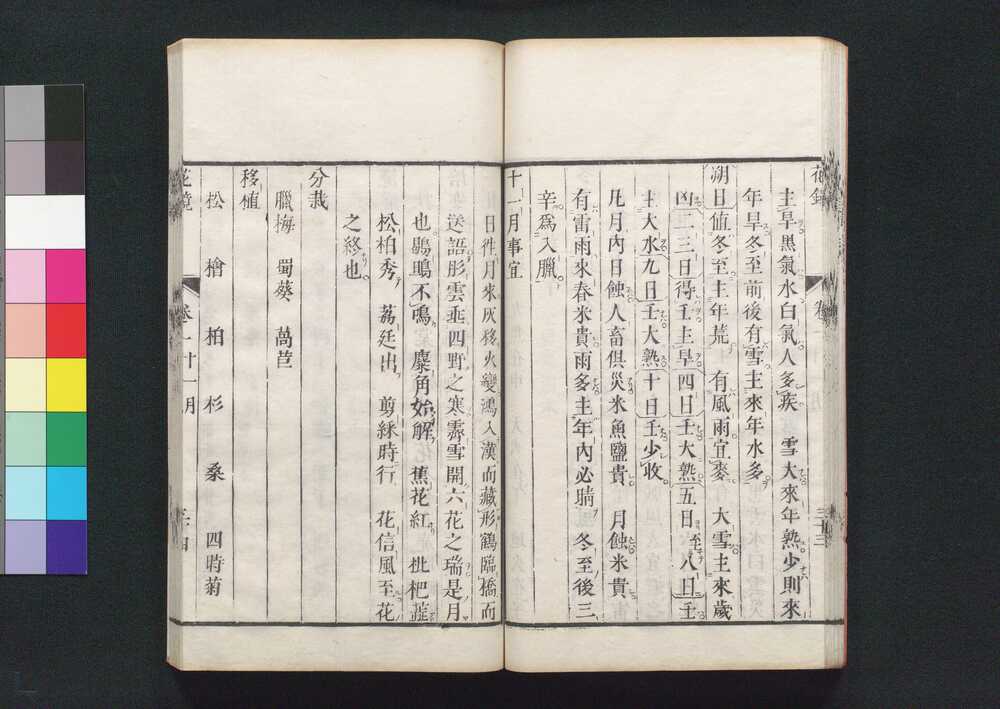 主旱黒氣水白氣人多疾　雪大來年熟少則來
年旱冬至前後有雪主來年水多
朔日值冬至主年荒　有風雨宜麥　大雪主來歲
凶二三日得壬主旱四日壬大熟五日至水八日壬
主大水九日壬大熟十日壬少收
凡月內日蝕人畜俱災米魚鹽貴　月蝕米貴
有雷雨來春米貴雨多主年內必晴　冬至後三
辛為入臘
十一月事宜
日往月來灰移火變鴻入漢而藏形鶴臨橋而
送語彤雲垂四野之寒霽雪開六花之瑞是月
也鶡鴠不鳴　麋角始解　蕉花紅　枇杷蕋
松柏秀　荔廷出　剪綵時行　花信風至花
之終也
分栽
臘梅　蜀葵　萵苣
移植
松　檜　柏　杉　桑　四時菊
花鏡　卷一　十一月